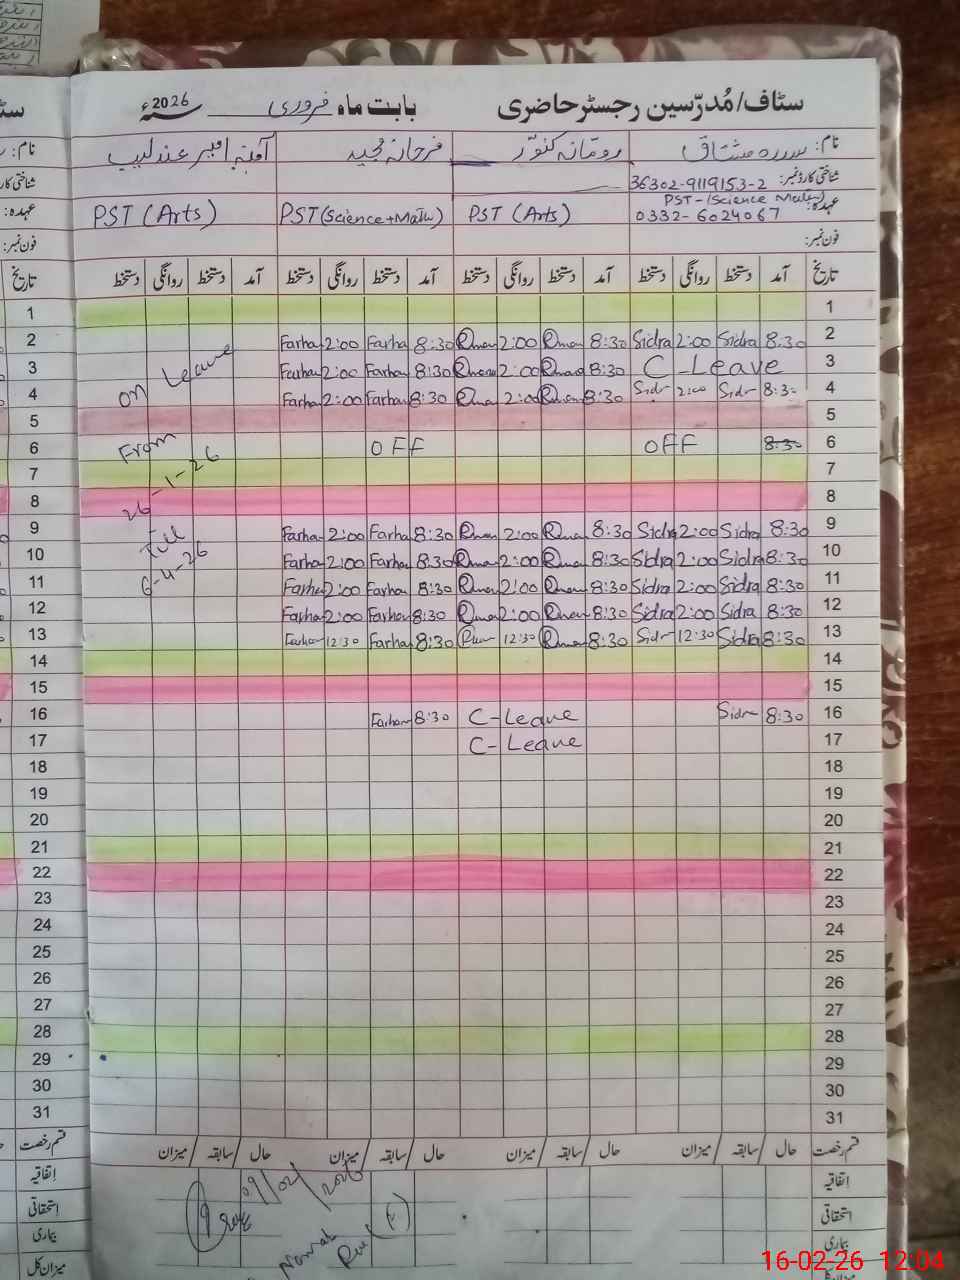 سٹاف/مُدرّسین رجسٹر حاضری بابت ماہ فروری سنہ 2026ء
نام: سدرہ مشتاق رومانہ کنول فرحانہ مجید آمنہ امیر عندلیب
شناختی کارڈ نمبر: 36302-9119153-2
عہدہ: PST-(Science Math) PST (Arts) PST (Science+Math) PST (Arts)
0332-6024067
فون نمبر:
تاریخ آمد دستخط روانگی دستخط آمد دستخط روانگی دستخط آمد دستخط روانگی دستخط آمد دستخط روانگی دستخط تاریخ
1 1
2 Farha 2:00 Farha 8:30 Ruman 2:00 Ruman 8:30 Sidra 2:00 Sidra 8:30 2
3 on Leave Farha 2:00 Farha 8:30 Ruman 2:00 Ruman 8:30 C-Leave 3
4 Farha 2:00 Farha 8:30 Ruma 2:00 Ruman 8:30 Sidr 2:00 Sidr 8:30 4
5 5
6 From OFF OFF 8:30 6
7 26-1-26 7
8 8
9 Till Farha 2:00 Farha 8:30 Ruman 2:00 Ruman 8:30 Sidra 2:00 Sidra 8:30 9
10 6-4-26 Farha 2:00 Farha 8:30 Ruma 2:00 Ruma 8:30 Sidra 2:00 Sidra 8:30 10
11 Farha 2:00 Farha 8:30 Ruman 2:00 Ruman 8:30 Sidra 2:00 Sidra 8:30 11
12 Farha 2:00 Farha 8:30 Ruma 2:00 Ruman 8:30 Sidra 2:00 Sidra 8:30 12
13 Farhan 12:30 Farha 8:30 Rum 12:30 Ruman 8:30 Sidr 12:30 Sidra 8:30 13
14 14
15 15
16 Farhan 8:30 C-Leave Sidr 8:30 16
17 C-Leave 17
18 18
19 19
20 20
21 21
22 22
23 23
24 24
25 25
26 26
27 27
28 28
29 29
30 30
31 31
قسم رخصت حال/سابقہ/میزان حال/سابقہ/میزان حال/سابقہ/میزان حال/سابقہ/میزان قسم رخصت
اتفاقیہ اتفاقیہ
استحقاقی استحقاقی
بیماری بیماری
میزان کل میزان کل
09/02/2026
16-02-26 12:04